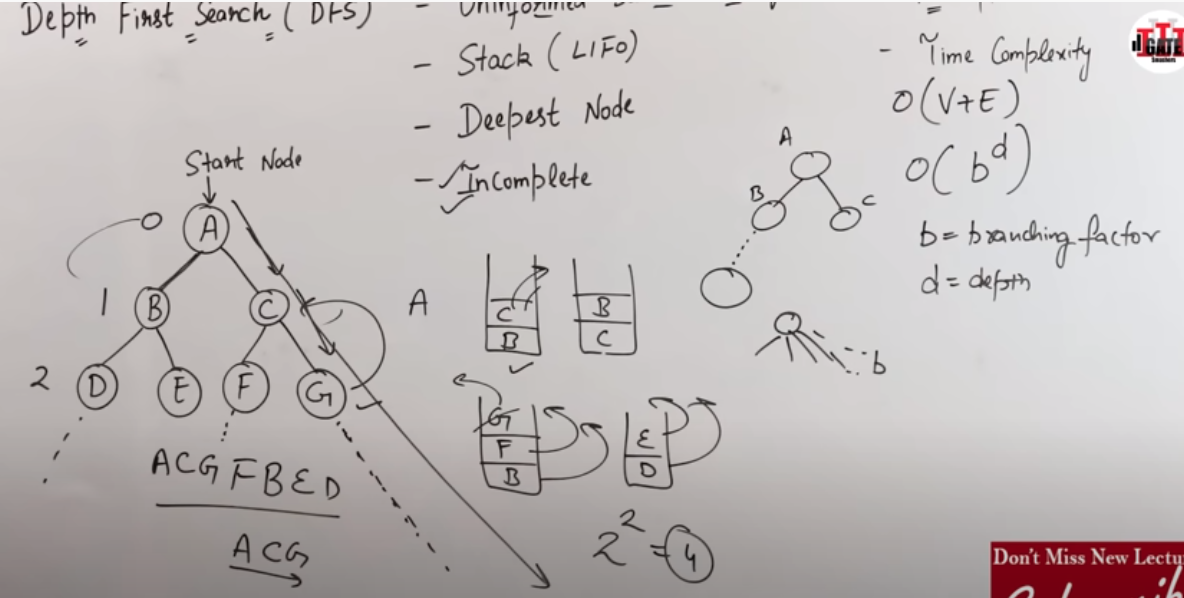 Depth First Search (DFS)
- Uninformed
- Stack (LIFO)
- Deepest Node
- Incomplete
- Time Complexity
O(V+E)
O(b^d)
b = branching factor
d = depth
GATE
Smashers
Start Node
0
A
1
B
C
2
D
E
F
G
ACGFBED
ACG
A
C
B
B
C
G
F
B
E
D
2^2 = 4
A
B
C
b
Don't Miss New Lectu